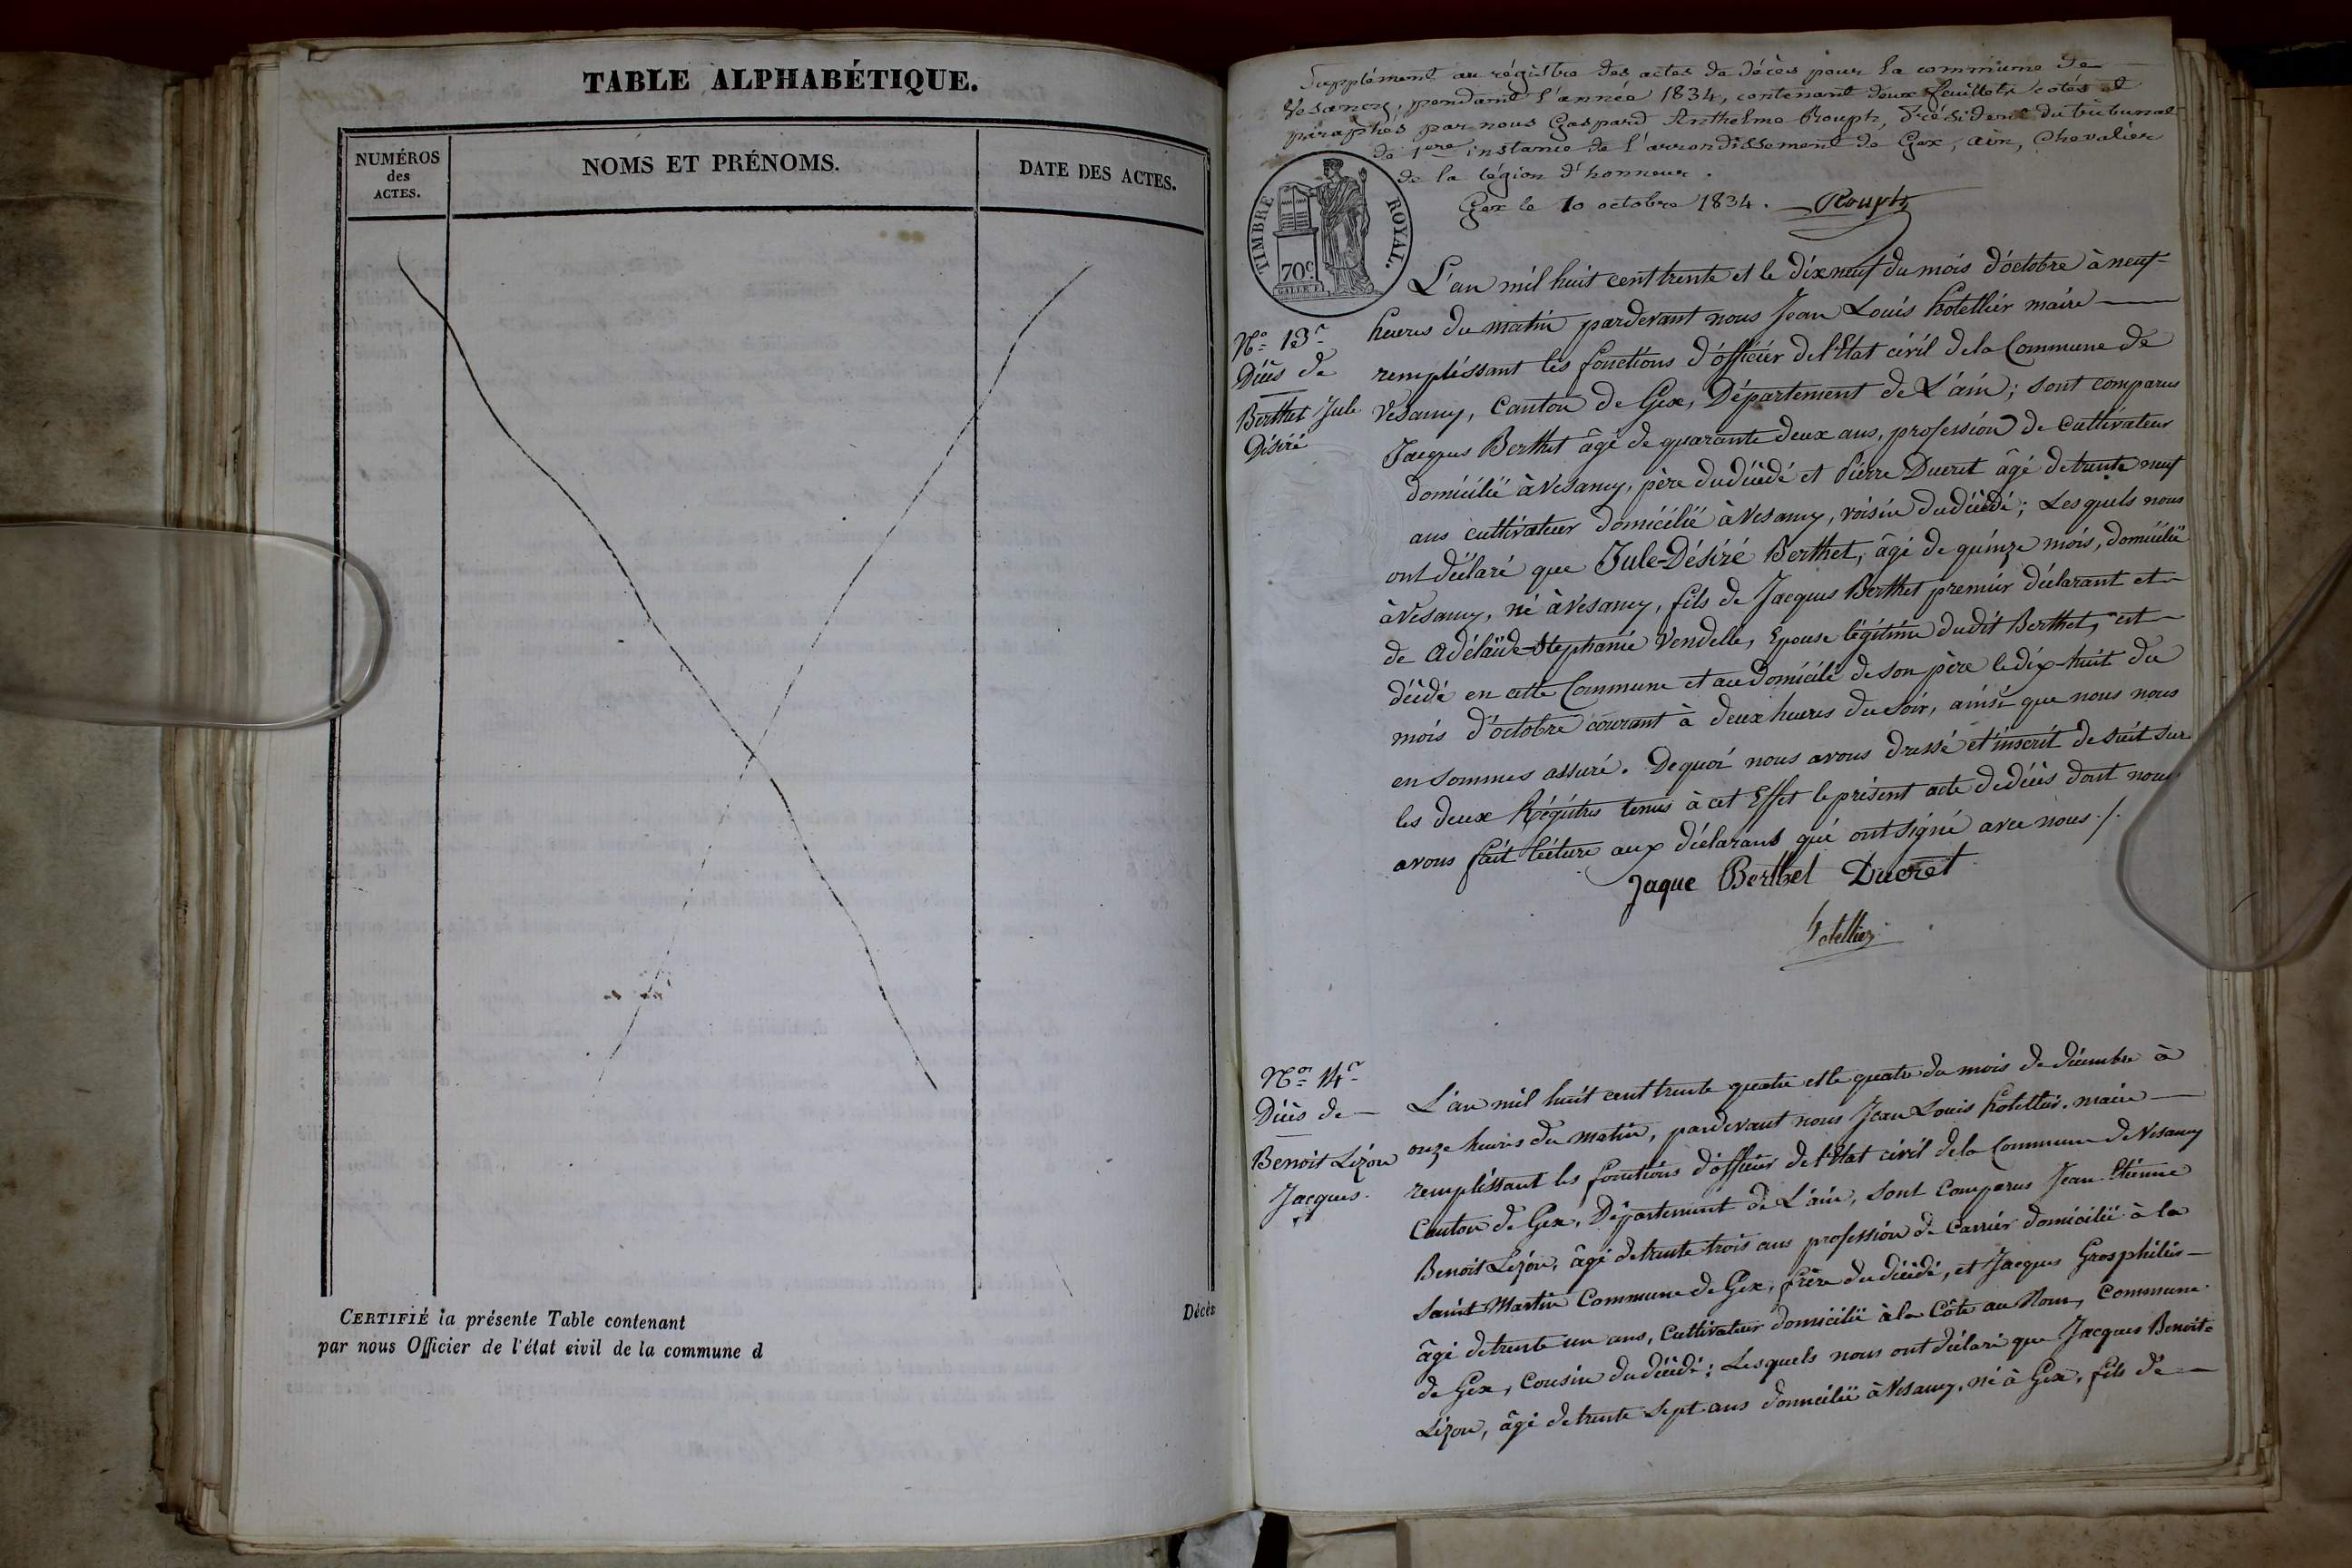 TABLE ALPHABÉTIQUE.
NUMÉROS
des
ACTES.
NOMS ET PRÉNOMS.
DATE DES ACTES.
CERTIFIÉ la présente Table contenant
Décès
par nous Officier de l'état civil de la commune d
Supplément au régistre des actes de décès pour la commune de
Vesancy, pendant l'année 1834, contenant deux feuillets cotés et
paraphés par nous Gaspard Anthelme Rouph, Président du tribunal
de 1ere instance de l'arrondissement de Gex, ain, Chevalier
de la légion d'honneur.
Gex le 10 octobre 1834. Rouph
TIMBRE ROYAL.
70c.
N.° 13.
Décès de
Berthet Jule
Désiré
L'an mil huit cent trente et le dix neuf du mois d'octobre à neuf
heures du matin pardevant nous Jean Louis hotellier maire
rempléssant les fonctions d'officier de l'Etat civil de la Commune de
Vesancy, Canton de Gex, Département de L'ain; sont comparus
Jacques Berthet âgé de quarante deux ans, profession de Cultivateur
domicilié à Vesancy, père du décédé et Pierre Ducret âgé de trente neuf
ans cultivateur domicilié à Vesancy, voisin du décédé; Lesquels nous
ont déclaré que Jule-Désiré Berthet, âgé de quinze mois, domicilié
à Vesancy, né à Vesancy, fils de Jacques Berthet premier déclarant et
de Adélaïde-Stephanie Vendelle, Epouse légitime dudit Berthet, est
décédé en cette Commune et au domicile de son père le dix-huit du
mois d'octobre courant à deux heures du soir, ainsi que nous nous
en sommes assuré. De quoi nous avons dressé et inscrit de suit sur
les deux Régistres tenus à cet Effet le présent acte de décès dont nous
avons fait lécture aux déclarans qui ont signé avec nous ./.
Jaque Berthet Ducret
hotellier
N.° 14.
Décès de
Benoit Lizon
Jacques.
L'an mil huit cent trente quatre et le quatre du mois de décembre à
onze heures du matin, pardevant nous Jean Louis hotellier. maire
rempléssant les fonctions d'officier de l'Etat civil de la Commune de Vesancy
Canton de Gex, Département de L'ain, sont Comparus Jean Etienne
Benoit Lizon, âgé de trente trois ans profession de Carrier domicilié à la
Saint Martin Commune de Gex, frère du décédé, et Jacques Grosphilis
âgé de trente un ans, Cultivateur domicilié à la Côte au Nom, Commune
de Gex, Cousin du décédé; Lesquels nous ont déclaré que Jacques Benoit
Lizon, âgé de trente sept ans domicilié à Vesancy, né à Gex, fils de